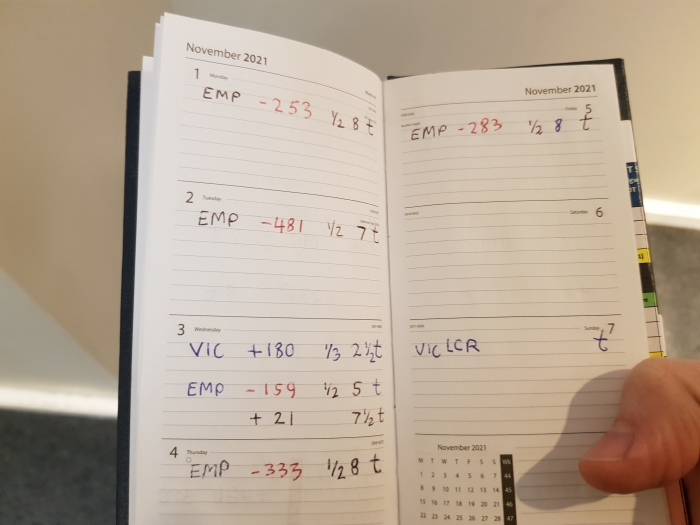 November 2021
1 Monday
EMP -253 1/2 8 t
2 Tuesday
EMP -481 1/2 7 t
3 Wednesday
VIC +180 1/3 2 1/2 t
EMP -159 1/2 5 t
+ 21 7 1/2 t
4 Thursday
EMP -333 1/2 8 t
November 2021
Friday 5
EMP -283 1/2 8 t
Saturday 6
Sunday 7
VIC LCR t
November 2021
M T W T F S S Wk
1 2 3 4 5 6 7 44
8 9 10 11 12 13 14 45
15 16 17 18 19 20 21 46
22 23 24 25 26 27 28 47